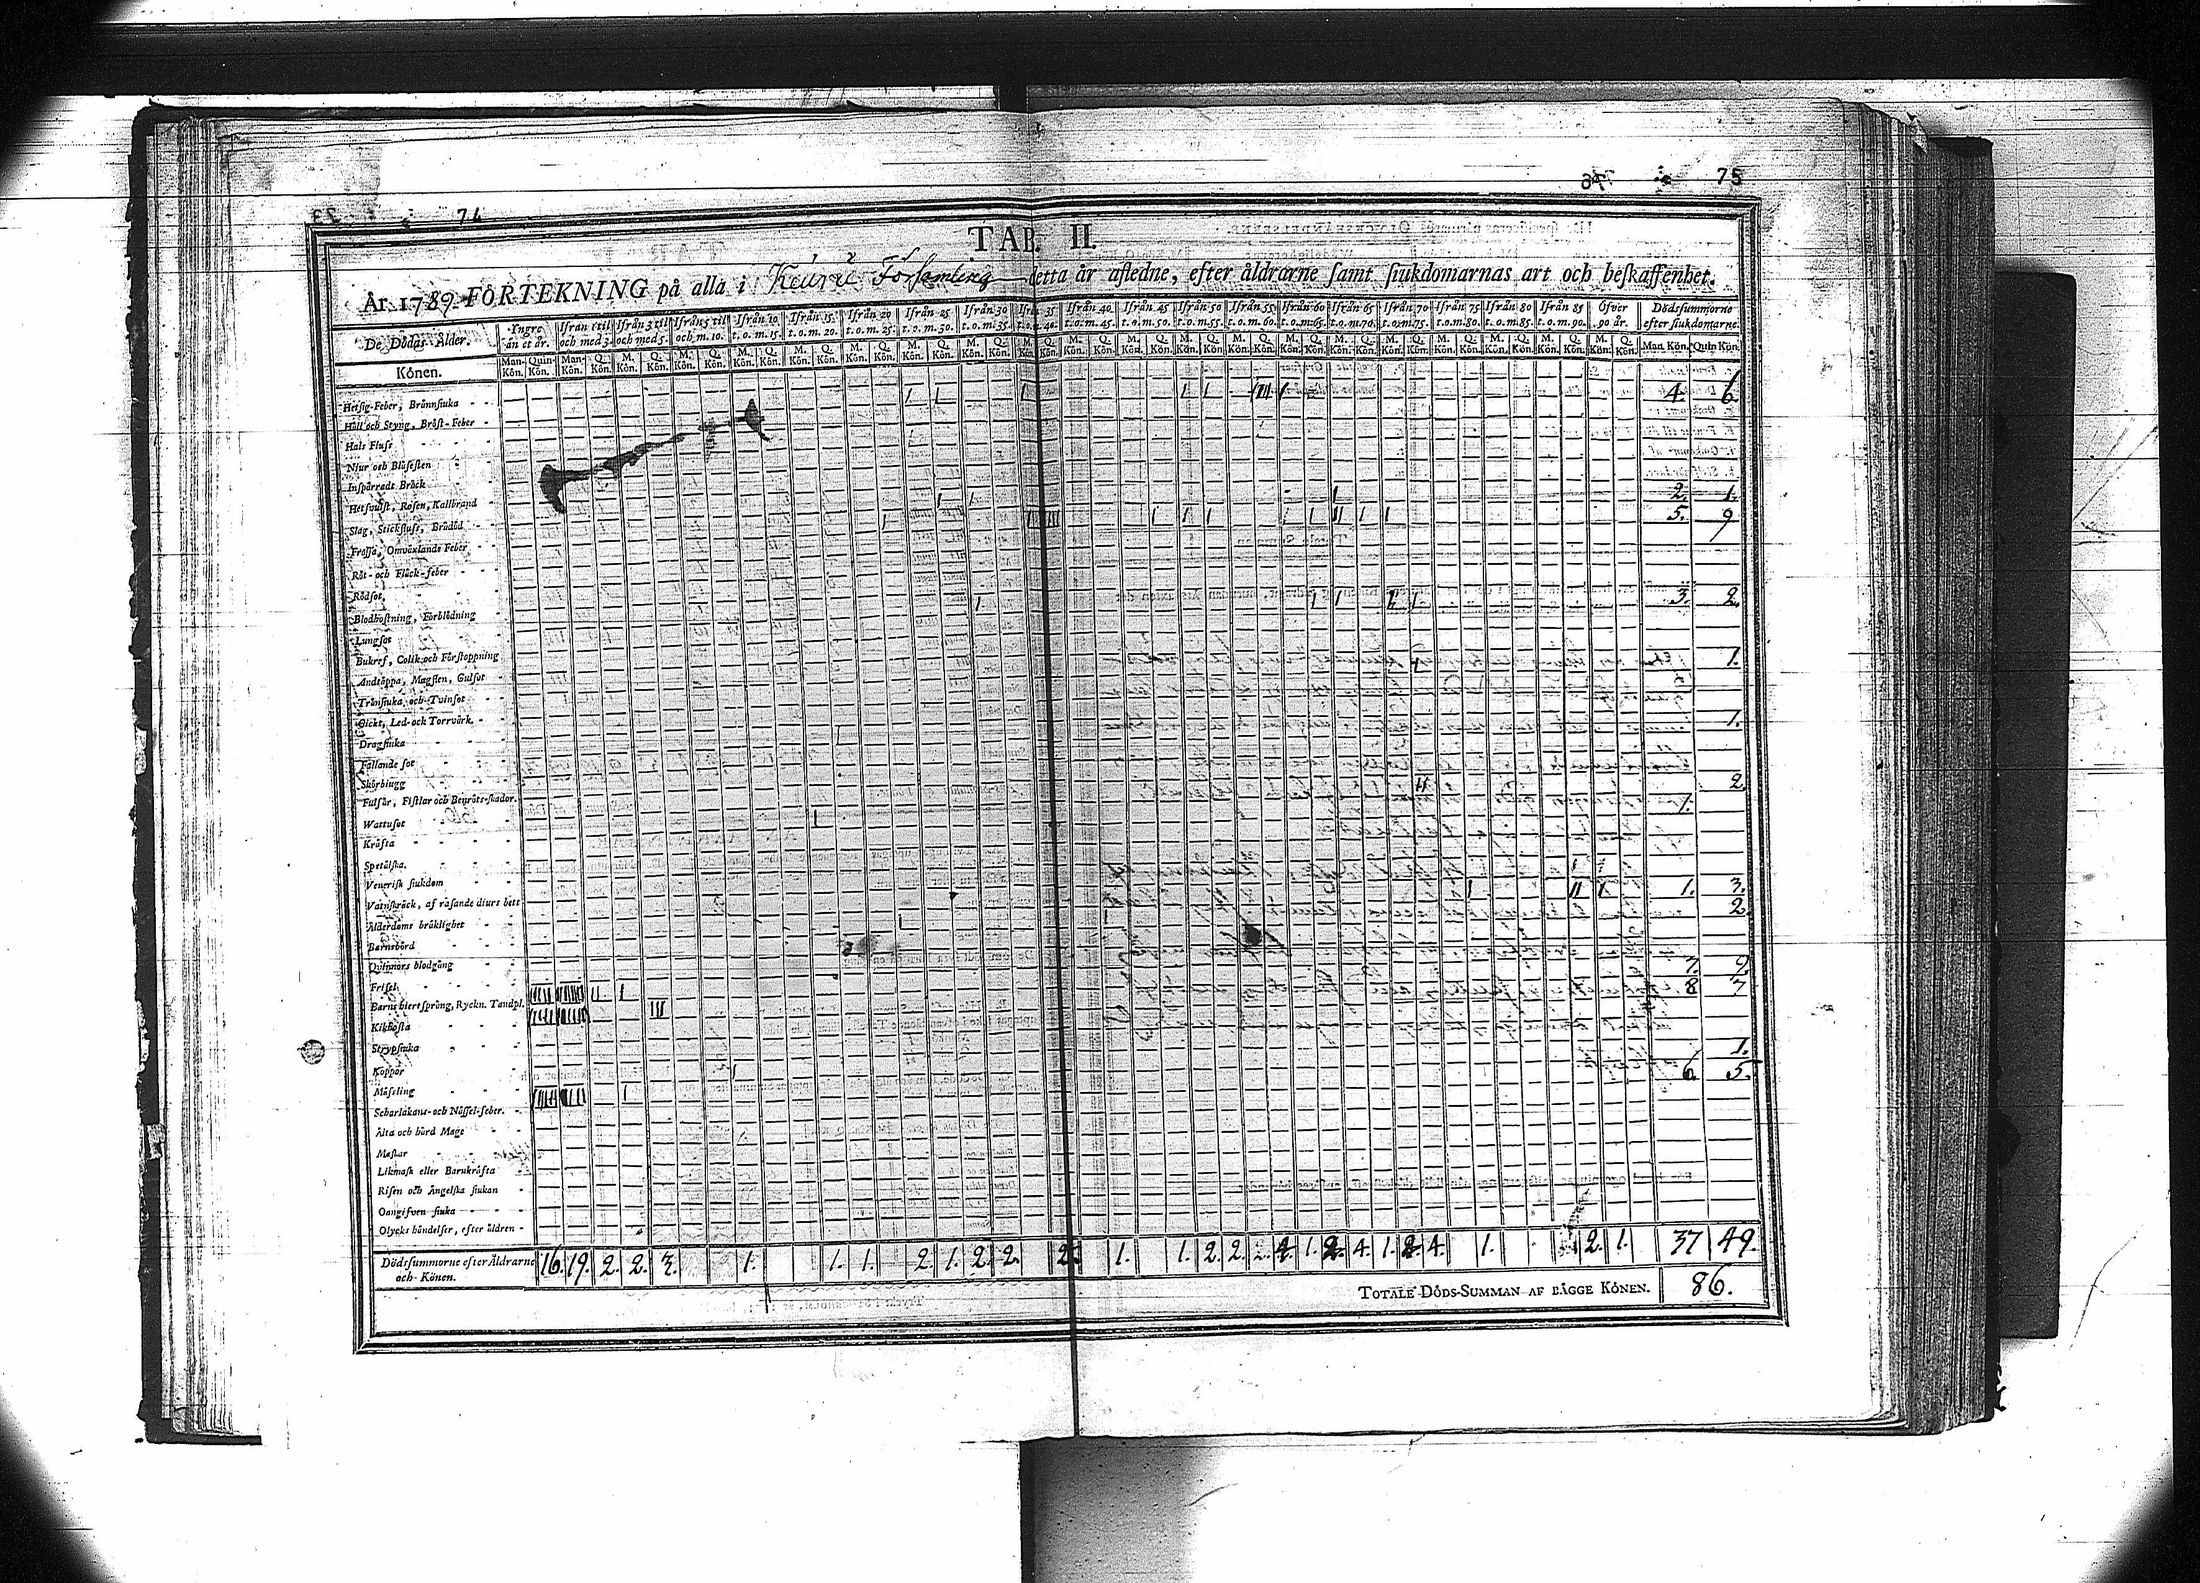 74
75
TAB. II.
År 1789. FÖRTEKNING på alla i Keuru Församling detta år afledne, efter åldrarne samt siukdomarnas art och beskaffenhet.
De Dödas Ålder. Yngre än et år. Ifrån 1 til och med 3. Ifrån 3 til och med 5. Ifrån 5 til och m. 10. Ifrån 10 t.o.m. 15. Ifrån 15 t.o.m. 20. Ifrån 20 t.o.m. 25. Ifrån 25 t.o.m. 30. Ifrån 30 t.o.m. 35. Ifrån 35 t.o.m. 40. Ifrån 40 t.o.m. 45. Ifrån 45 t.o.m. 50. Ifrån 50 t.o.m. 55. Ifrån 55 t.o.m. 60. Ifrån 60 t.o.m. 65. Ifrån 65 t.o.m. 70. Ifrån 70 t.o.m. 75. Ifrån 75 t.o.m. 80. Ifrån 80 t.o.m. 85. Ifrån 85 t.o.m. 90. Öfver 90 år. Dödssummorne efter siukdomarne.
Könen. Man-Kön. Quin-Kön. Man-Kön. Q. Kön. M. Kön. Q. Kön. M. Kön. Q. Kön. M. Kön. Q. Kön. M. Kön. Q. Kön. M. Kön. Q. Kön. M. Kön. Q. Kön. M. Kön. Q. Kön. M. Kön. Q. Kön. M. Kön. Q. Kön. M. Kön. Q. Kön. M. Kön. Q. Kön. M. Kön. Q. Kön. M. Kön. Q. Kön. M. Kön. Q. Kön. M. Kön. Q. Kön. M. Kön. Q. Kön. M. Kön. Q. Kön. M. Kön. Q. Kön. M. Kön. Q. Kön. Man Kön. Quin Kön.
Hetsig-Feber, Brännsiuka 4. 6.
Håll och Styng, Bröst-Feber
Hals Fluss
Njur och Blåsesten
Inspärradt Bråck
Hetsvulst, Rosen, Kallbrand 2. 1.
Slag, Stickfluss, Brådöd 5. 9
Frossa, Omväxlande Feber
Röt- och Fläck-feber
Rödsot 3. 2.
Blodhostning, Förblödning
Lungsot
Bukref, Colik och Förstoppning 1.
Andtäppa, Magsten, Gulsot
Trånsiuka och Tvinsot
Gickt, Led- och Torrvärk. 1.
Dragsiuka
Fallande sot
Skörbiugg 2.
Fulsår, Fistlar och Benröts-skador. 1.
Wattusot
Kräfta
Spetälska.
Venerisk siukdom 1. 3.
Vatuskräck, af rasande diurs bett 2.
Ålderdoms bräklighet
Barnsbörd
Quinnors blodgång 7. 9.
Frisel 8 7
Barns hiertsprång, Ryckn. Tandpl.
Kikhosta
Strypsiuka 1.
Koppor 6. 5.
Mässling
Scharlakans- och Nässel-feber.
Älta och hård Mage
Maskar
Likmask eller Barnkräfta
Risen och Ängelska siukan
Oangifven siuka
Olycks händelser, efter åldren
Dödssummorne efter Åldrarne och Könen. 16. 19. 2. 2. 3. 1. 1. 1. 2. 1. 2. 2. 2. 1. 1. 2. 2. 2. 4. 1. 2. 4. 1. 2. 4. 1. 2. 1. 37 49.
TOTALE DÖDS-SUMMAN AF BÄGGE KÖNEN. 86.